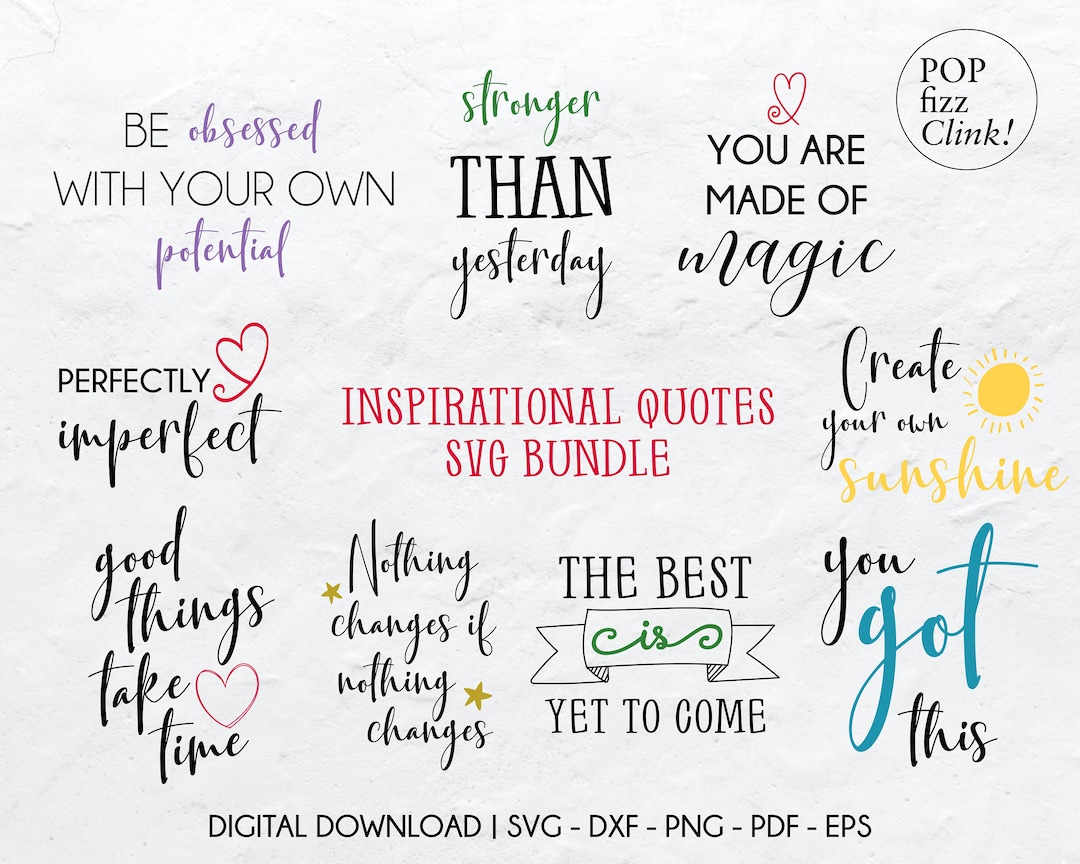 BE obsessed
WITH YOUR OWN
potential
stronger
THAN
yesterday
YOU ARE
MADE OF
magic
POP
fizz
Clink!
PERFECTLY
imperfect
INSPIRATIONAL QUOTES
SVG BUNDLE
Create
your own
sunshine
good
things
take
time
Nothing
changes if
nothing
changes
THE BEST
is
YET TO COME
you
got
this
DIGITAL DOWNLOAD | SVG - DXF - PNG - PDF - EPS